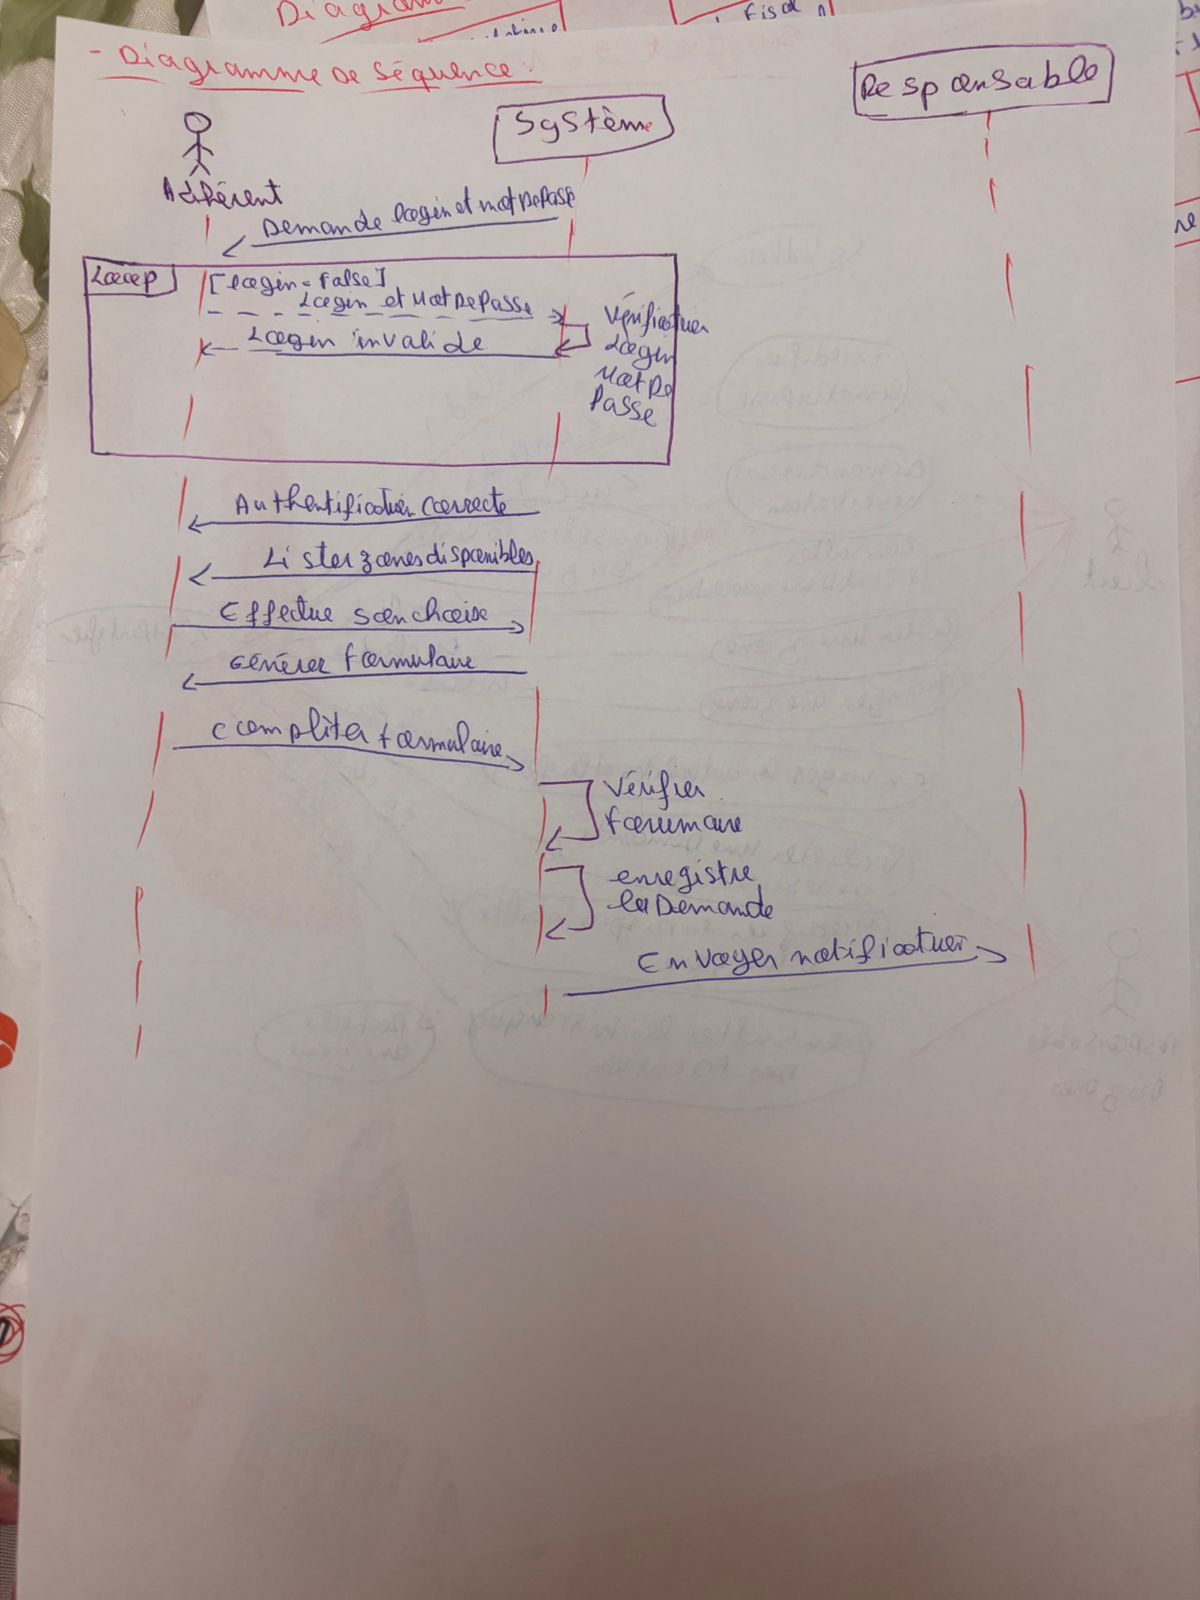 Diagram
fisd
- Diagramme De séquence :
Système
Responsable
Adhérent
Demande login et mot De Passe
Loop
[login = false]
Login et Mot De Passe
Login invalide
Vérification
Login
Mot De
Passe
Authentification correcte
Lister zones disponibles
Effectue son choise
Générer formulaire
compliter formulaire
Vérifier
forumaire
enregistre
la Demande
Envoyer notification